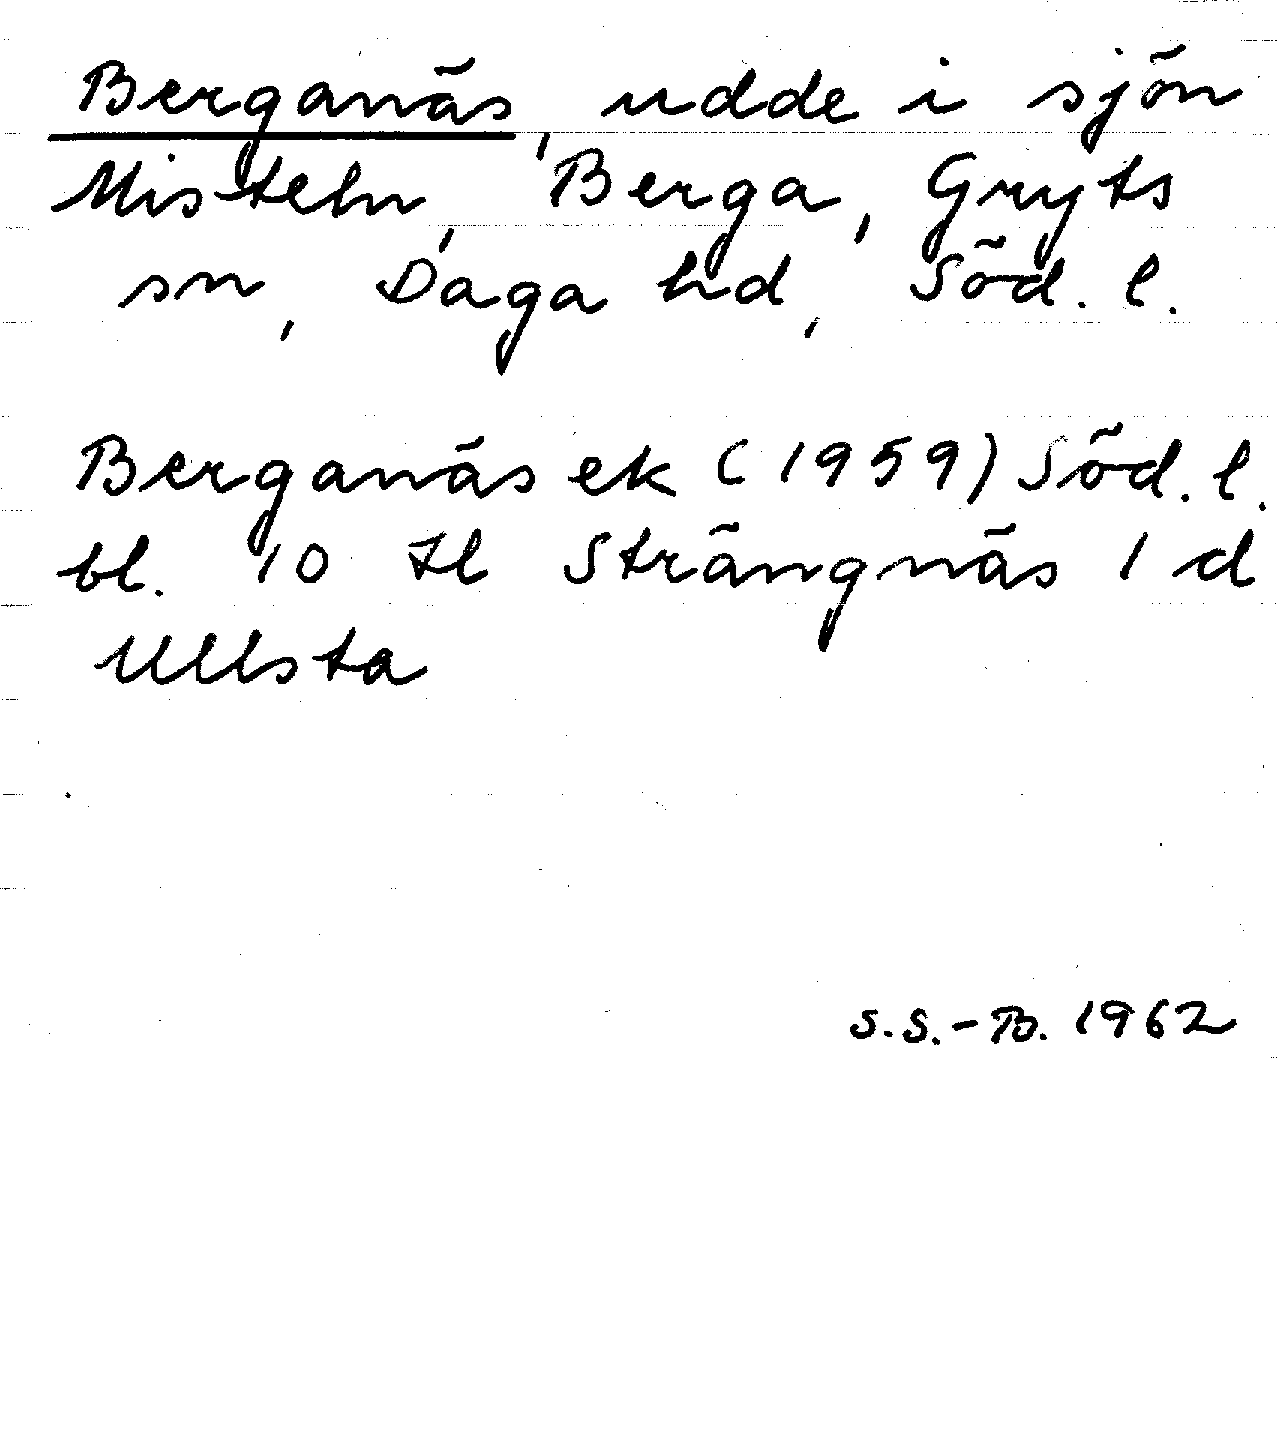 Berganäs, udde i sjön
Misteln, Berga, Gryts
sn, Daga hd, Söd. l.
Berganäs ek (1959) Söd. l.
bl. 10 Il Strängnäs 1 d
Ullsta
S.S.-B. 1962